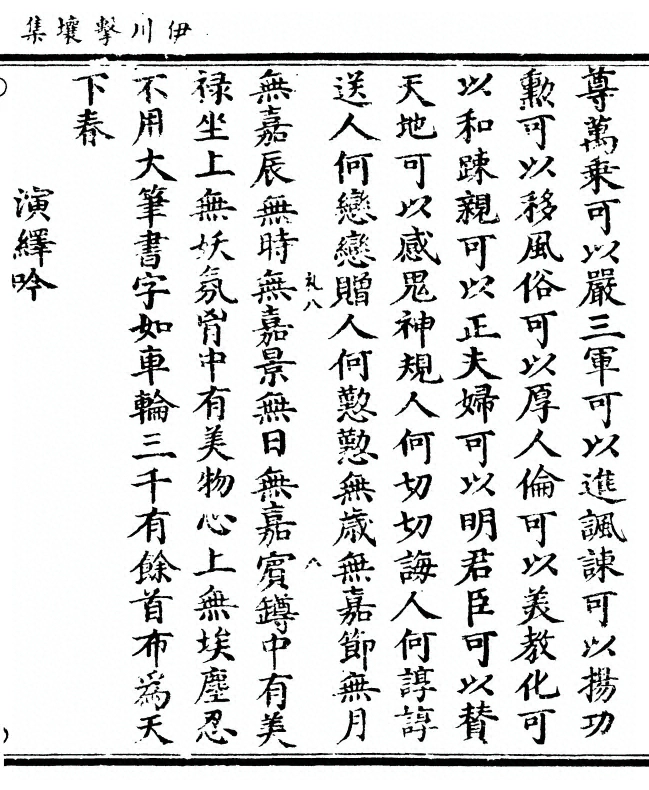 伊川擊壤集
尊萬乘可以嚴三軍可以進諷諫可以揚功
勲可以移風俗可以厚人倫可以美教化可
以和踈親可以正夫婦可以明君臣可以賛
天地可以感鬼神規人何切切誨人何諄諄
送人何戀戀贈人何懃懃無歳無嘉節無月
礼八
無嘉辰無時無嘉景無日無嘉賓罇中有美
禄坐上無妖氛胷中有美物心上無埃塵忍
不用大筆書字如車輪三千有餘首布為天
下春
演繹吟